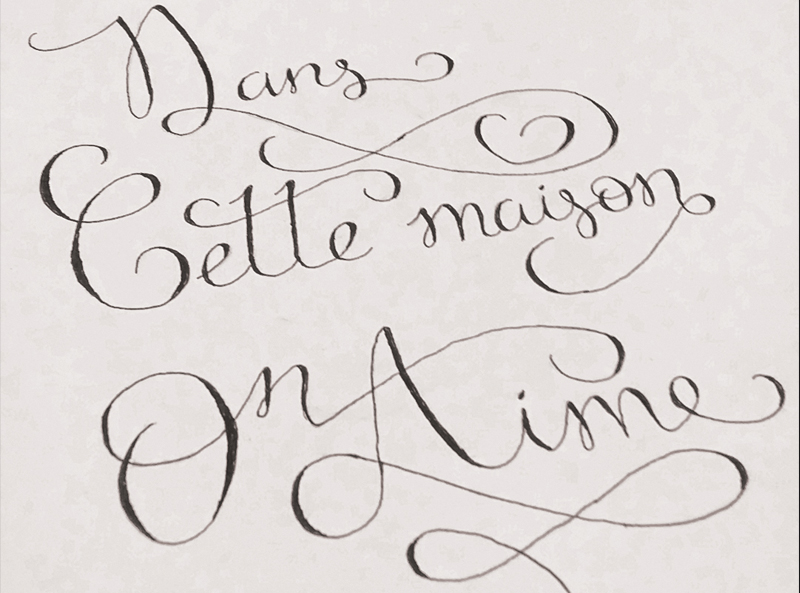 Dans
Cette maison
On Aime